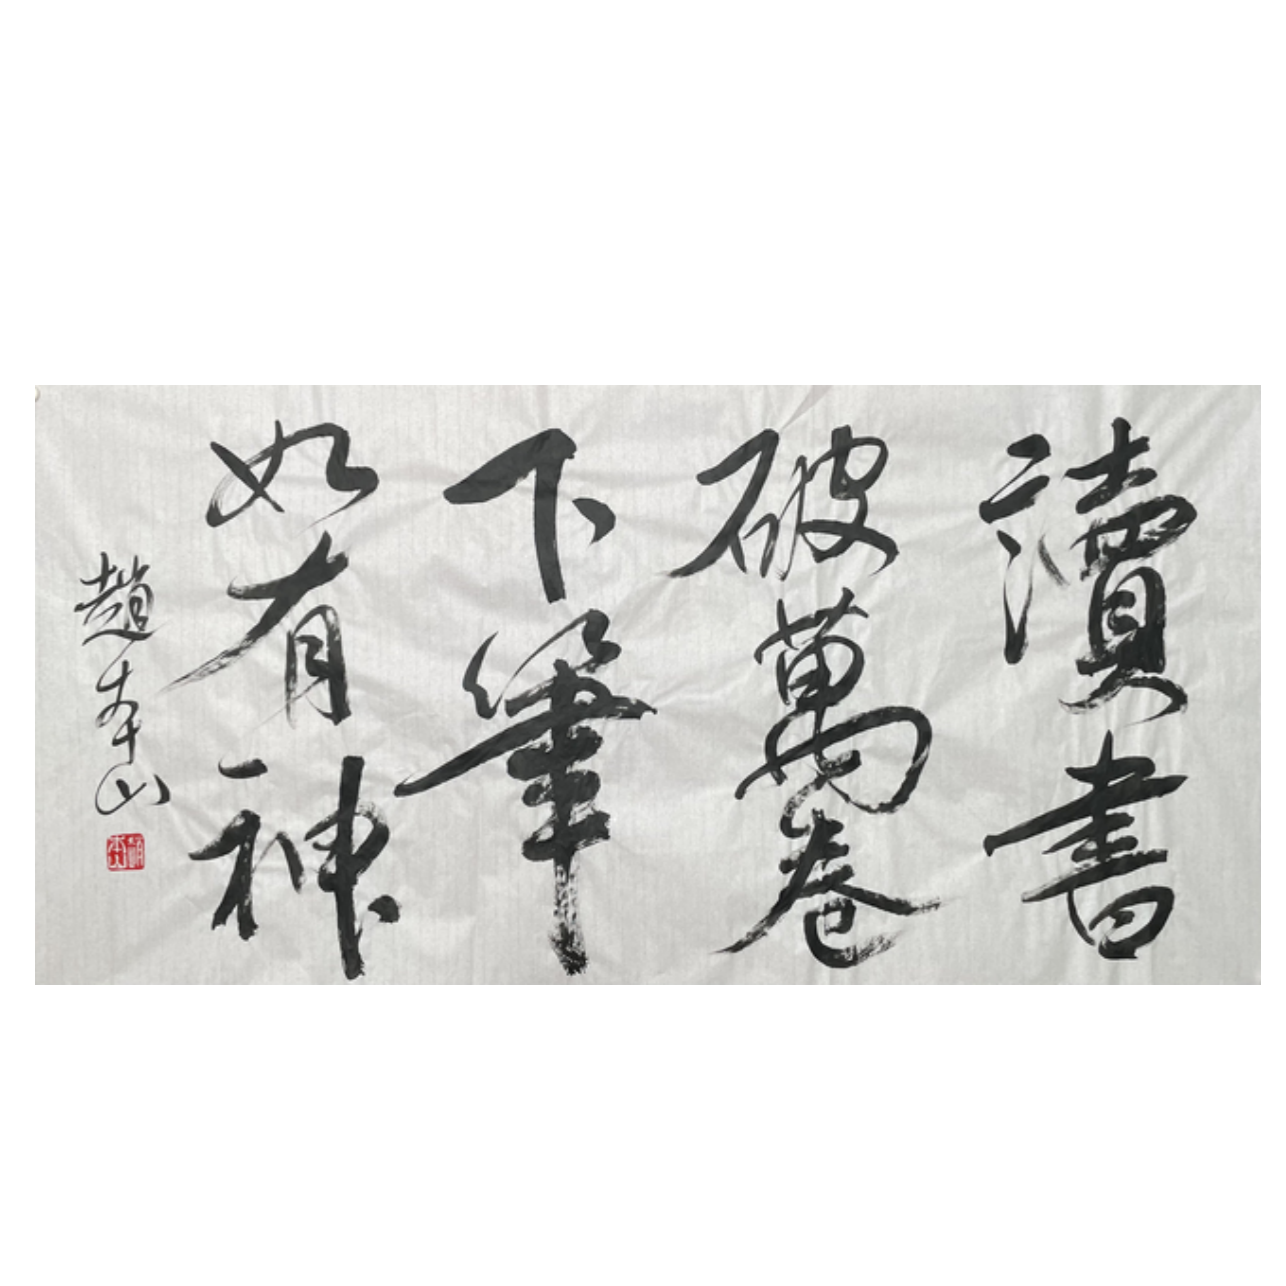 讀書
破萬卷
下筆
如有神
趙本山